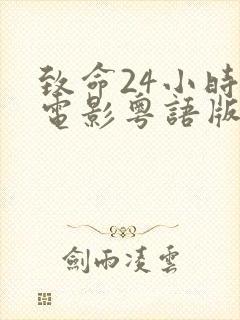 致命24小時
電影粵語版
劍雨凌雲